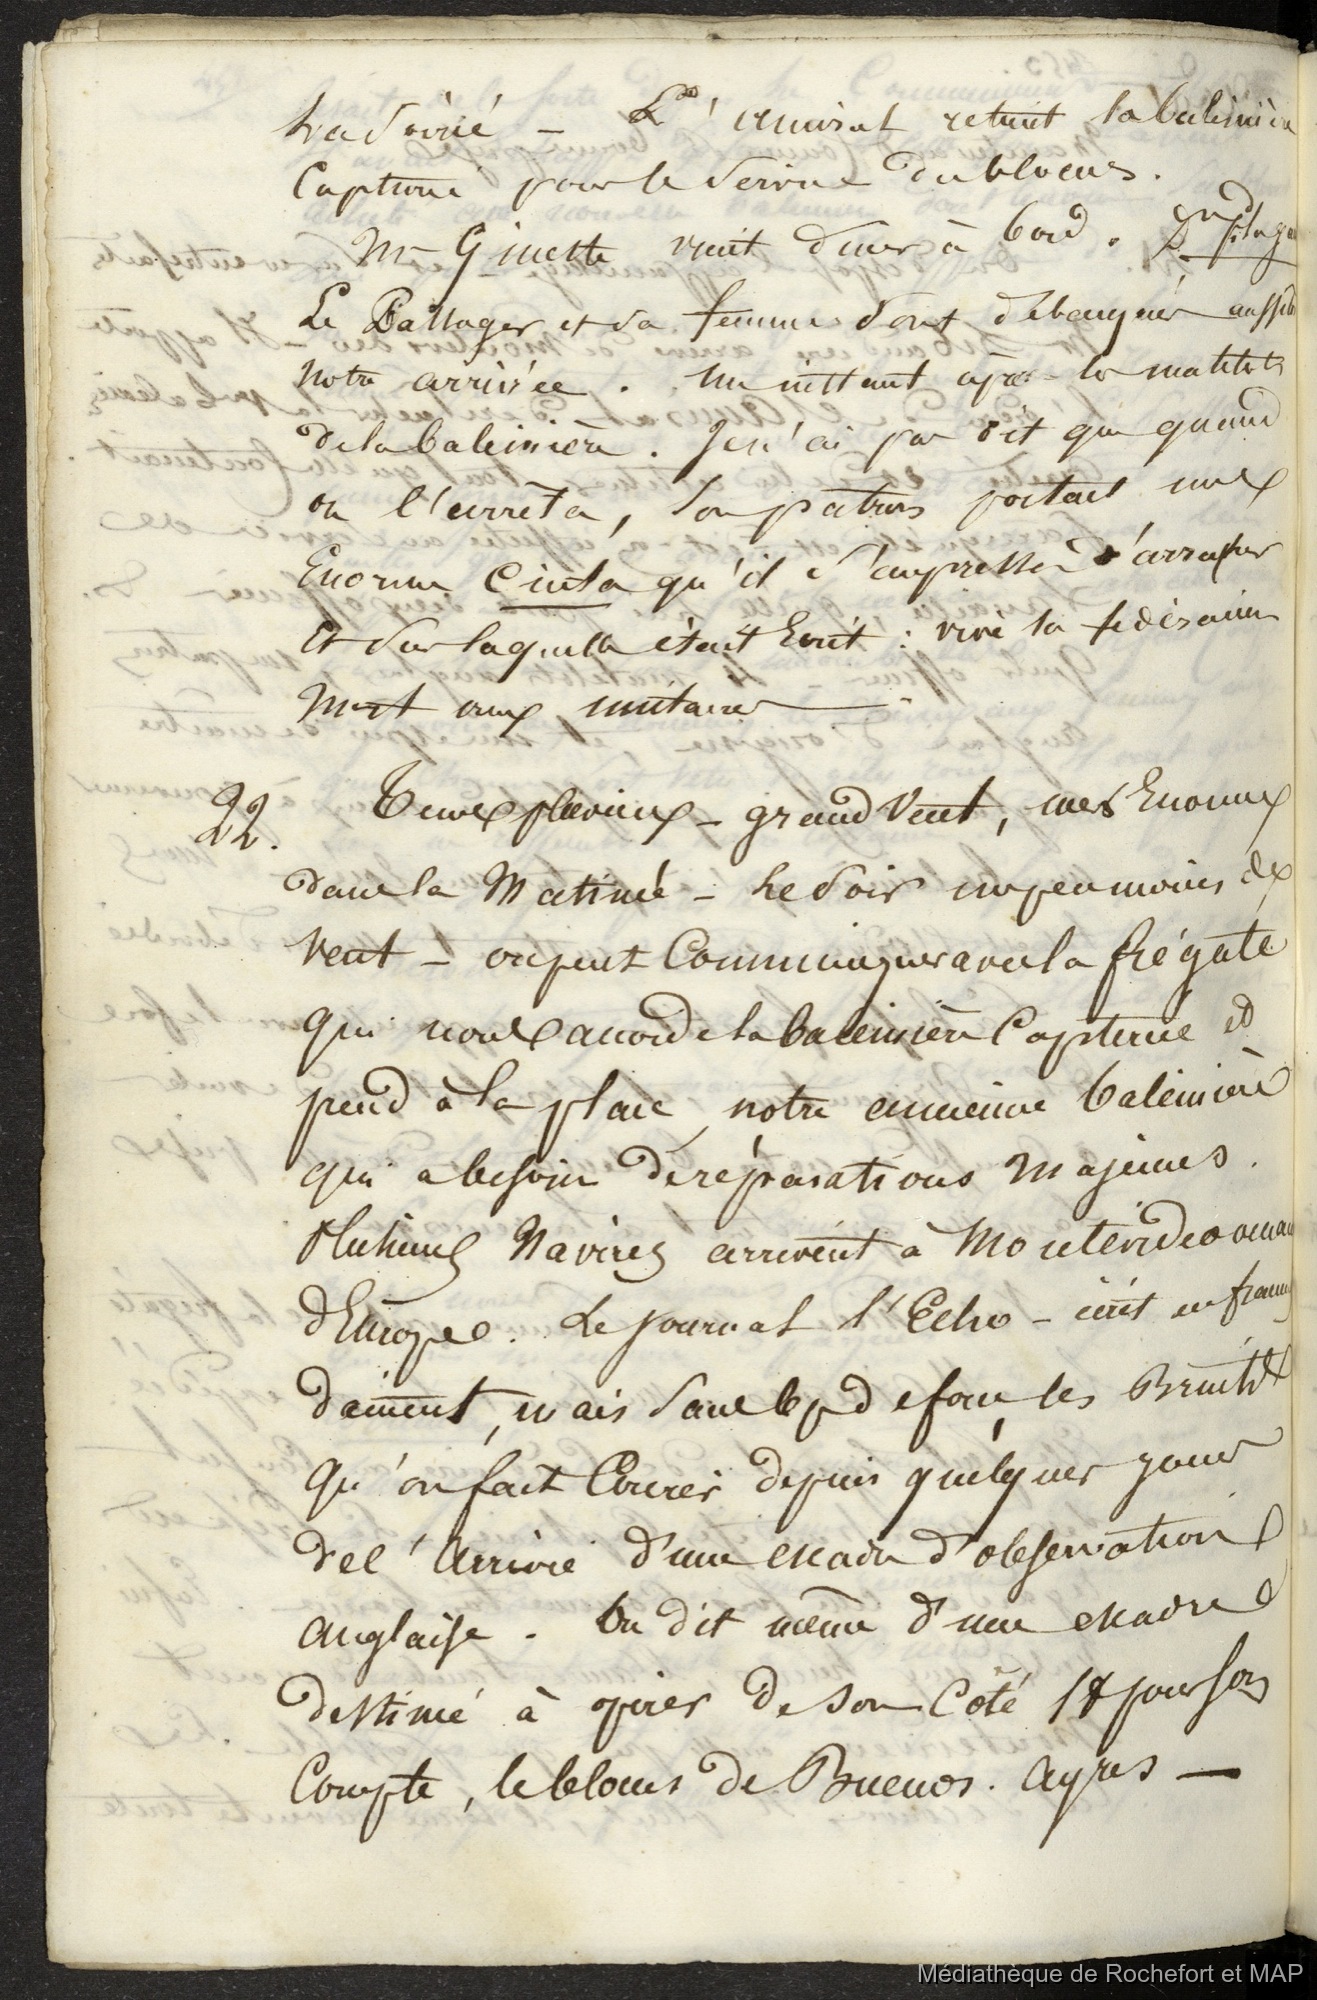 la soirée - L'amiral retint la baleinière
Capturée pour le service du blocus.
Mr Ginette vient diner à bord.
Le Passager et sa femme sont débarqués aussitôt
notre arrivée. Un instant après les matelots
de la baleinière. Je n'ai pas dit que quand
on l'arrêta, son patron portait une
Enorme Cinta qu'il s'empressa d'arracher
Et sur laquelle était Ecrit : vive la fédération
Mort aux unitaires
22. Tems pluvieux - grand Vent, mer Enorme
dans la Matinée - Le soir un peu moins de
Vent - on peut Communiquer avec la frégate
qui nous accorde la baleinière Capturée et
prend à la place notre ancienne baleinière
qui a besoin de réparations Majeures.
Plusieurs Navires arrivent à Montevideo venant
d'Europe. Le journal l'Echo - écrit en français
dément, mais sans les bruits
Qu'on fait Courir depuis quelques jours
de l'Arrivée d'une escadre d'observation
anglaise. On dit même d'une escadre
destinée à opérer de son Côté et pour son
Compte, le blocus de Buenos. Ayres -
Médiathèque de Rochefort et MAP